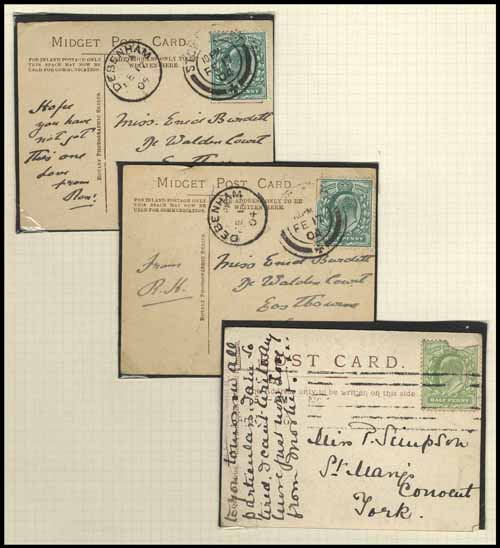 MIDGET POST CARD.
FOR INLAND POSTAGE ONLY
THIS SPACE MAY NOW BE
USED FOR COMMUNICATION.
THE ADDRESS ONLY TO BE
WRITTEN HERE.
DEBENHAM
04
ROTARY PHOTOGRAPHIC SERIES.
Hope
you have
not got
this one
Love
from
Ron.
Miss Enid Burdett
De Walden Court
MIDGET POST CARD.
FOR INLAND POSTAGE ONLY
THIS SPACE MAY NOW BE
USED FOR COMMUNICATION.
THE ADDRESS ONLY TO BE
WRITTEN HERE.
DEBENHAM
04
FE
04
HALF PENNY
ROTARY PHOTOGRAPHIC SERIES.
From
R.H.
Miss Enid Burdett
De Walden Court
Eastbourne
POST CARD.
only to be written on this side
HALF PENNY
to you tomorrow all
particulars. I am so
tired. I can't write today
more just now. Love
from Mother
Miss P. Simpson
St Mary's
Convent
York.